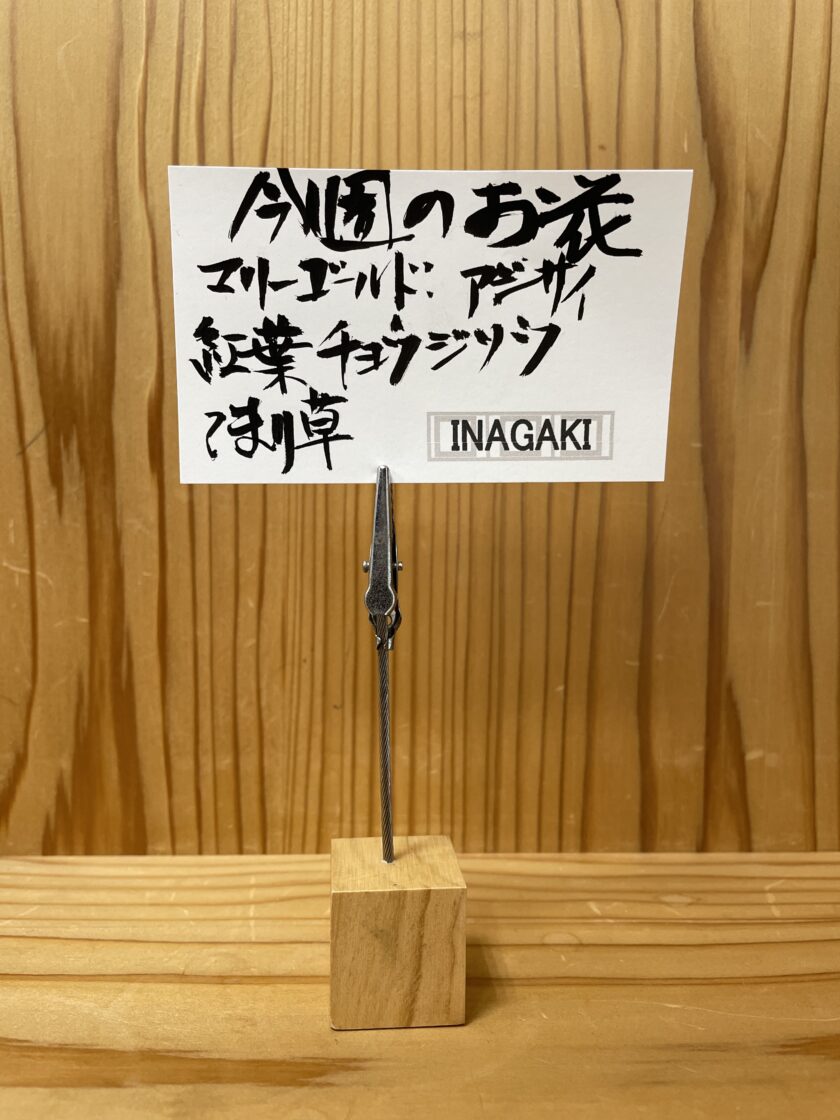 今週のお花
マリーゴールド: アジサイ
紅葉チョウジソウ
こまり草
INAGAKI